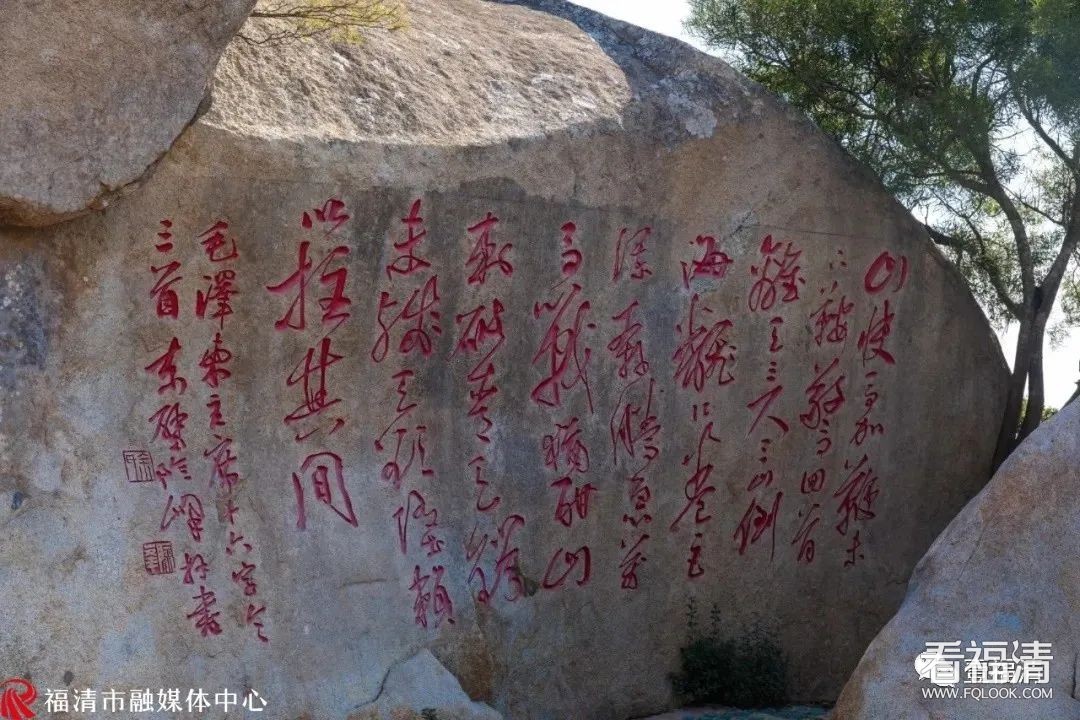 山快马加鞭未
下鞍驚回首
離天三尺三山倒
海翻江卷巨
瀾奔騰急萬
马战猶酣山
刺破青天鍔
未残天欲墮賴
以拄其间
毛澤東主席十六字令
三首
福清市融媒体中心
看福清
WWW.FQLOOK.COM